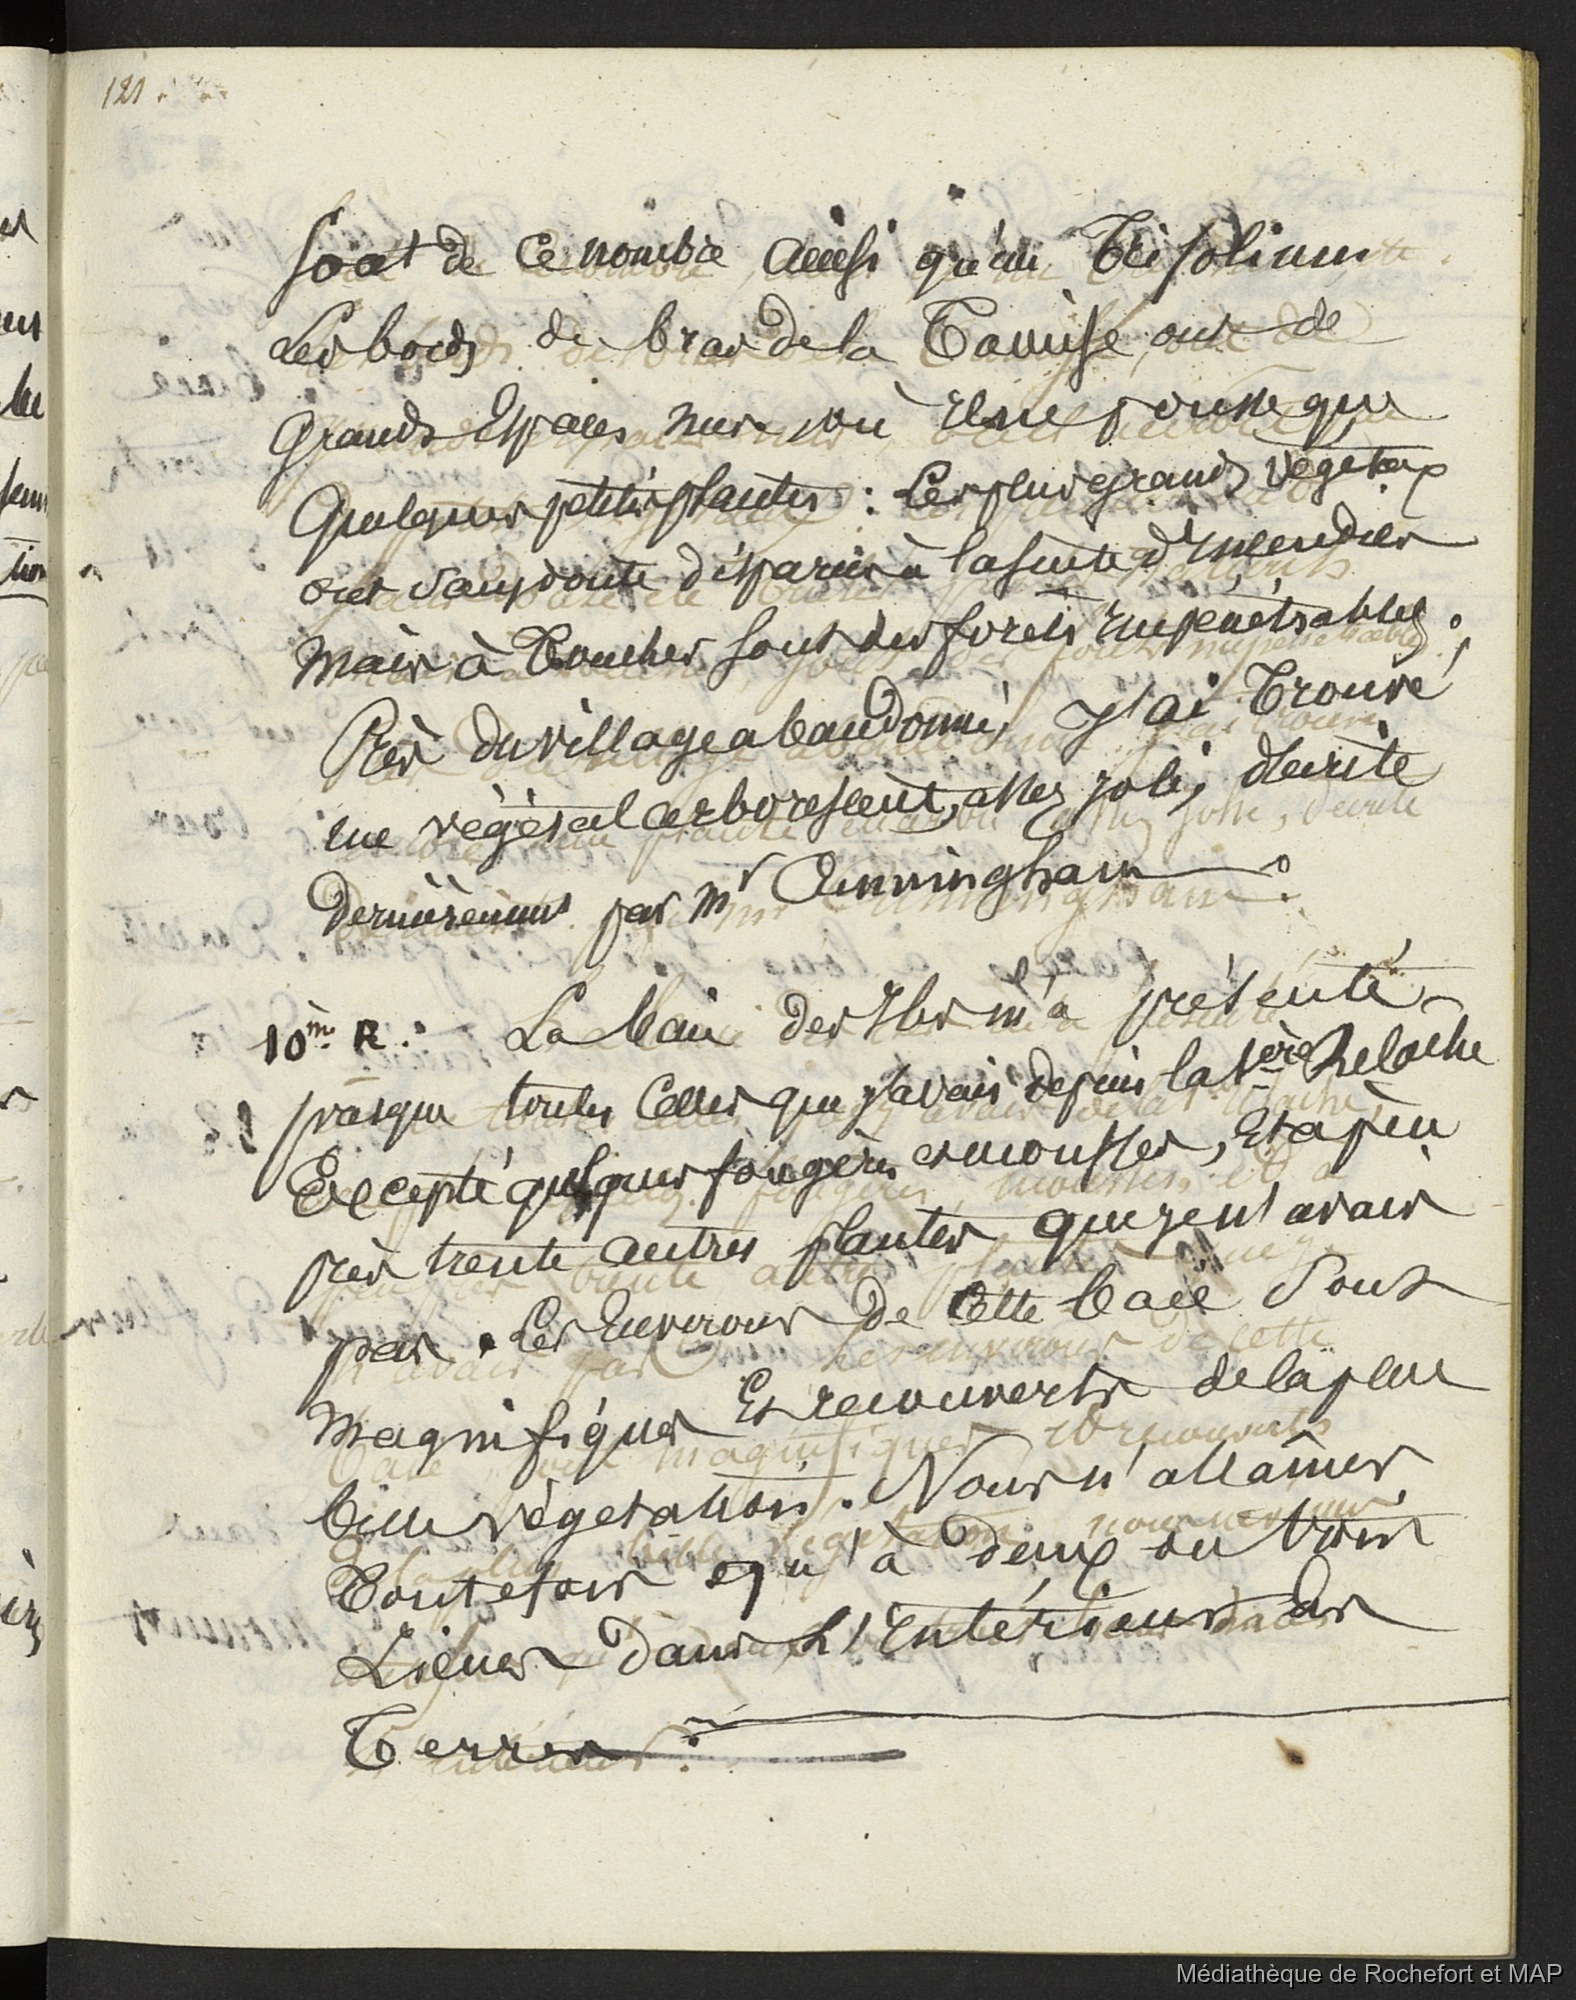 121.
Sont de Ce nombre ainsi qu'un Trifolium,
Les bords du bras de la Tamise, ont de
Grands Espaces nus où Il ne pousse que
Quelques petites plantes : Les plus grands végétaux
ont sans doute disparus à la suite d'Incendies
Mais à Toucher sont des forêts Impénétrables ;
Près du village abandonné, J'ai Trouvé
un végétal arborescent, assez joli, décrite
dernièrement par Mr Cunningham.
10m. R : La baie des Iles m'a présenté
presque toutes Celles que j'avais depuis la 1ère Relache
Excepté quelques fougères et mousses, Et à peu
près trente autres plantes que je n'avais
pas. Les Environs de Cette baie Sont
Magnifiques Et recouverts de la plus
belle végétation. Nous n'allâmes
Toutefois qu'à deux ou trois
Lieues dans L'Intérieur des
Terres.
Médiathèque de Rochefort et MAP